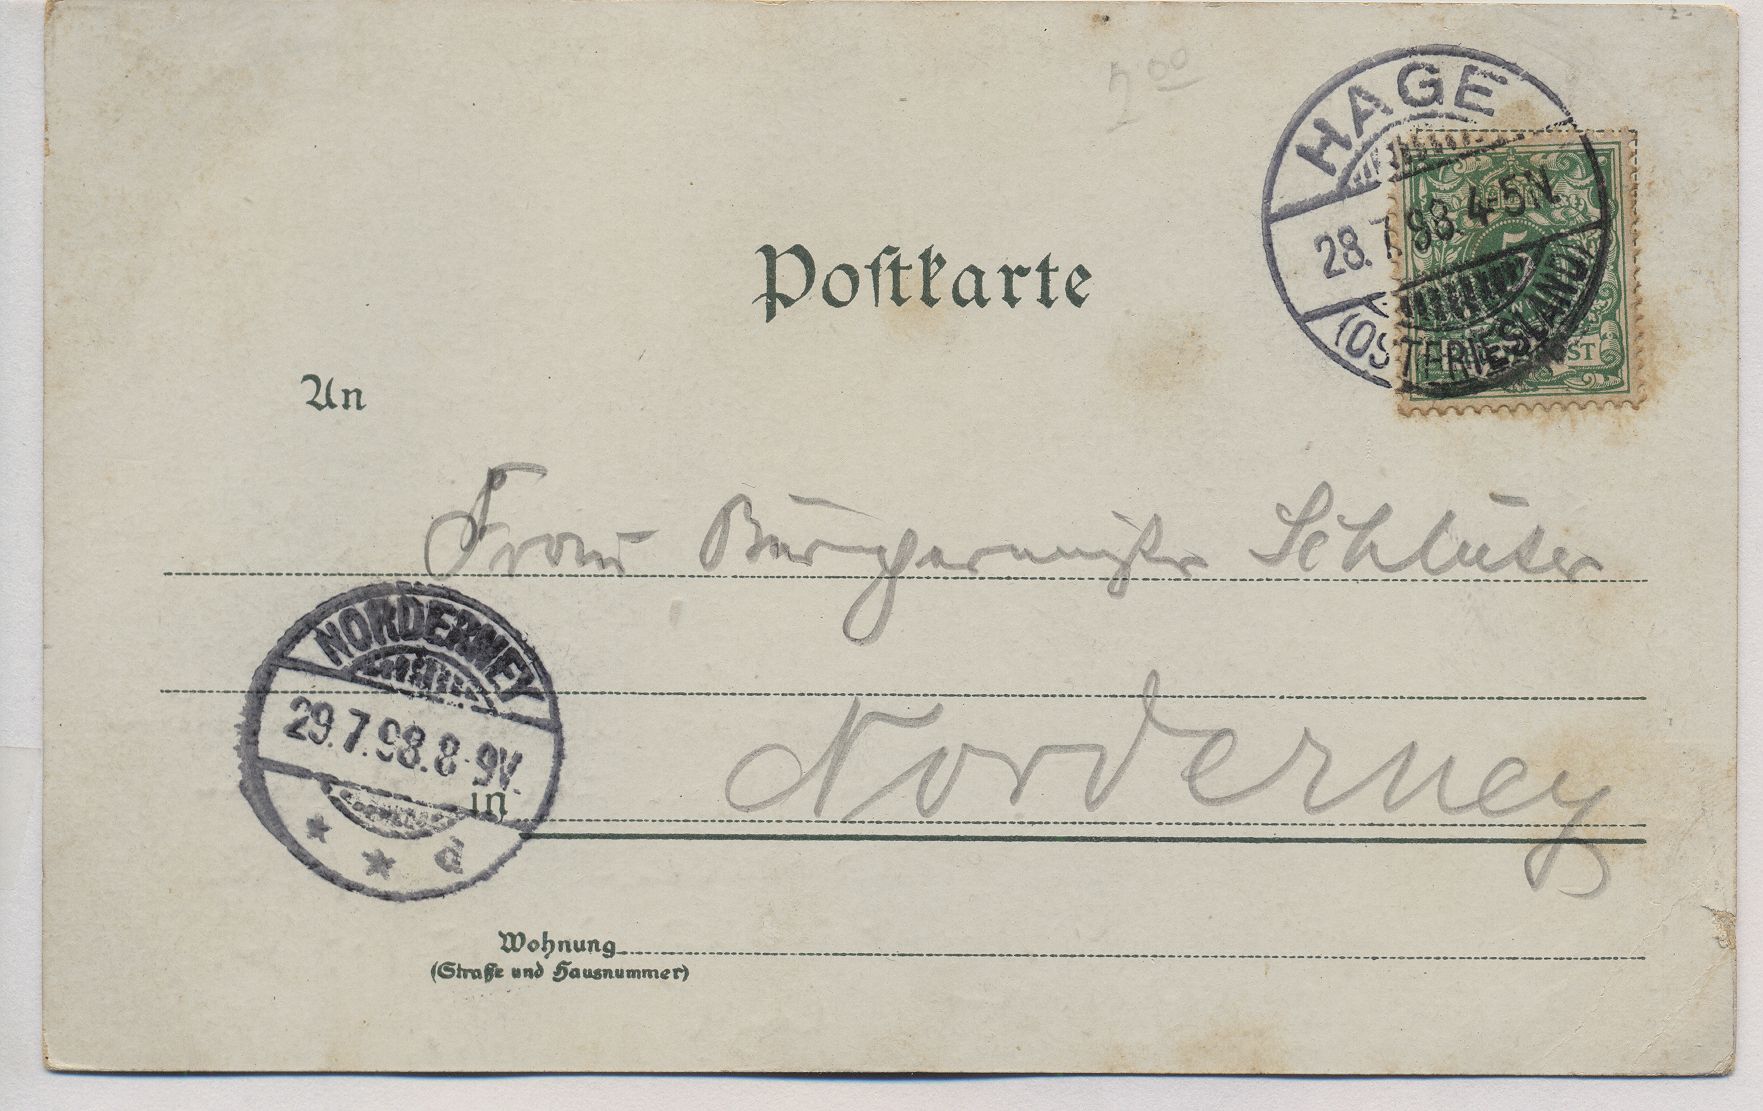 2.00
HAGE
28.7.98.4-5N.
(OSTFRIESLAND)
5
Postkarte
An
Frau Bürgermeister Schlüter
NORDERNEY
29.7.98.8-9V.
* * d
in Norderney
Wohnung
(Straße und Hausnummer)